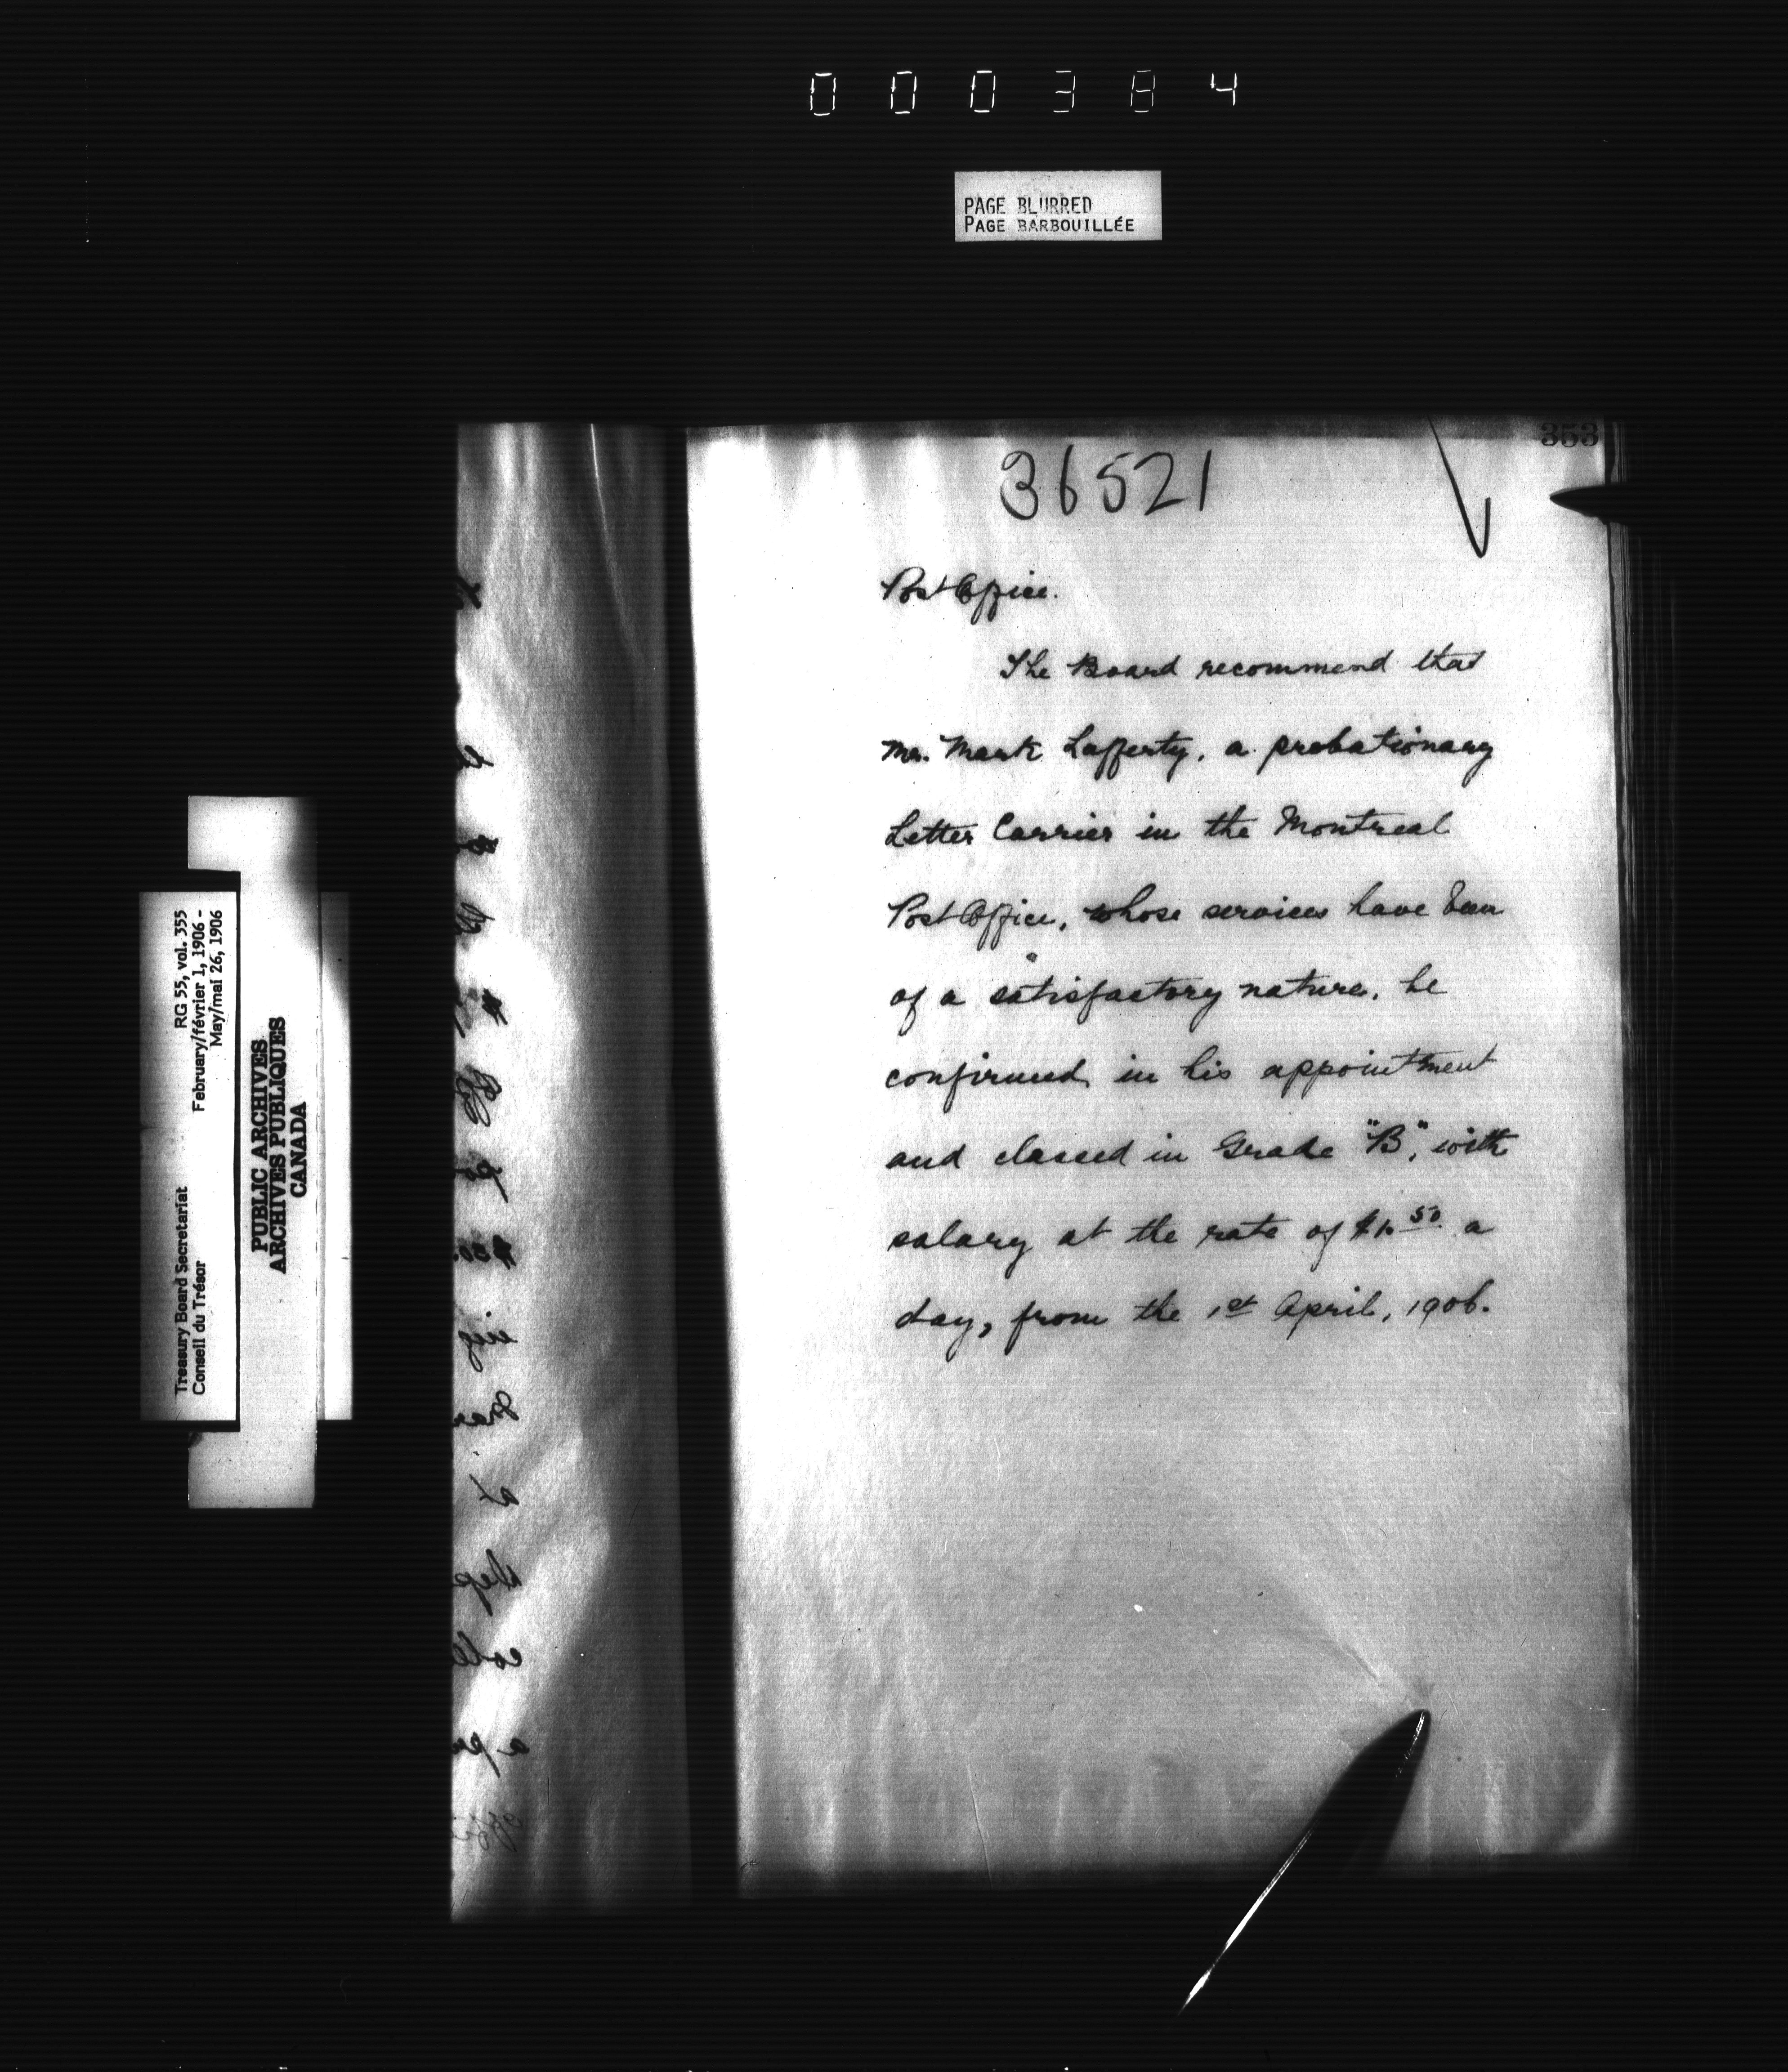 000384
PAGE BLURRED
PAGE BARBOUILLÉE
353
36521
Post Office.
The Board recommend that
Mr. Mark Lafferty, a probationary
Letter Carrier in the Montreal
Post Office, whose services have been
of a satisfactory nature, be
confirmed in his appointment
and classed in Grade "B", with
salary at the rate of $1.50 a
day, from the 1st April, 1906.
Treasury Board Secretariat RG 55, vol. 355
Conseil du Trésor February/février 1, 1906 -
May/mai 26, 1906
PUBLIC ARCHIVES
ARCHIVES PUBLIQUES
CANADA